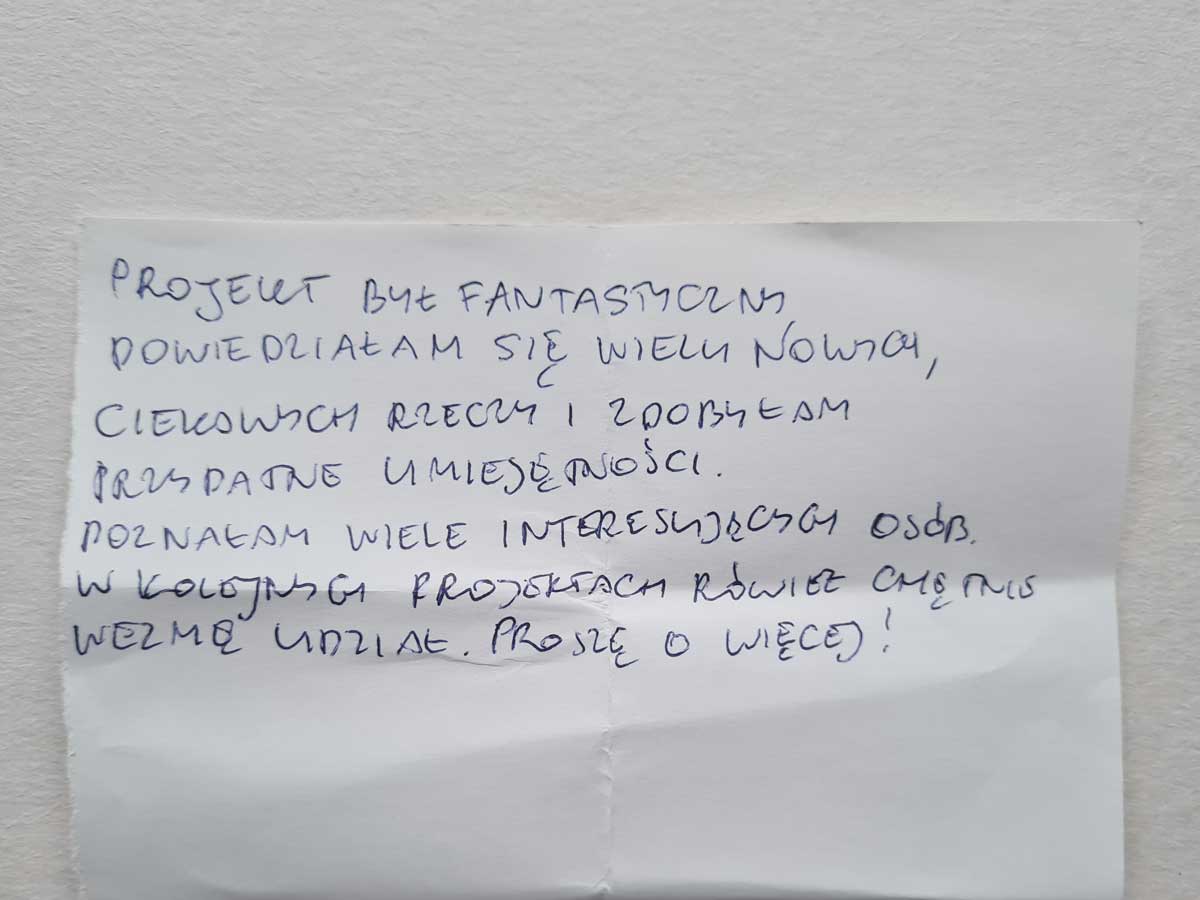 PROJEKT BYŁ FANTASTYCZNY
DOWIEDZIAŁAM SIĘ WIELU NOWYCH,
CIEKOWYCH RZECZY I ZDOBYŁAM
PRZYDATNE UMIEJĘTNOŚCI.
POZNAŁAM WIELE INTERESUJĄCYCH OSÓB.
W KOLEJNYCH PROJEKTACH RÓWIEŻ CHĘTNIE
WEZMĘ UDZIAŁ. PROSZĘ O WIĘCEJ!